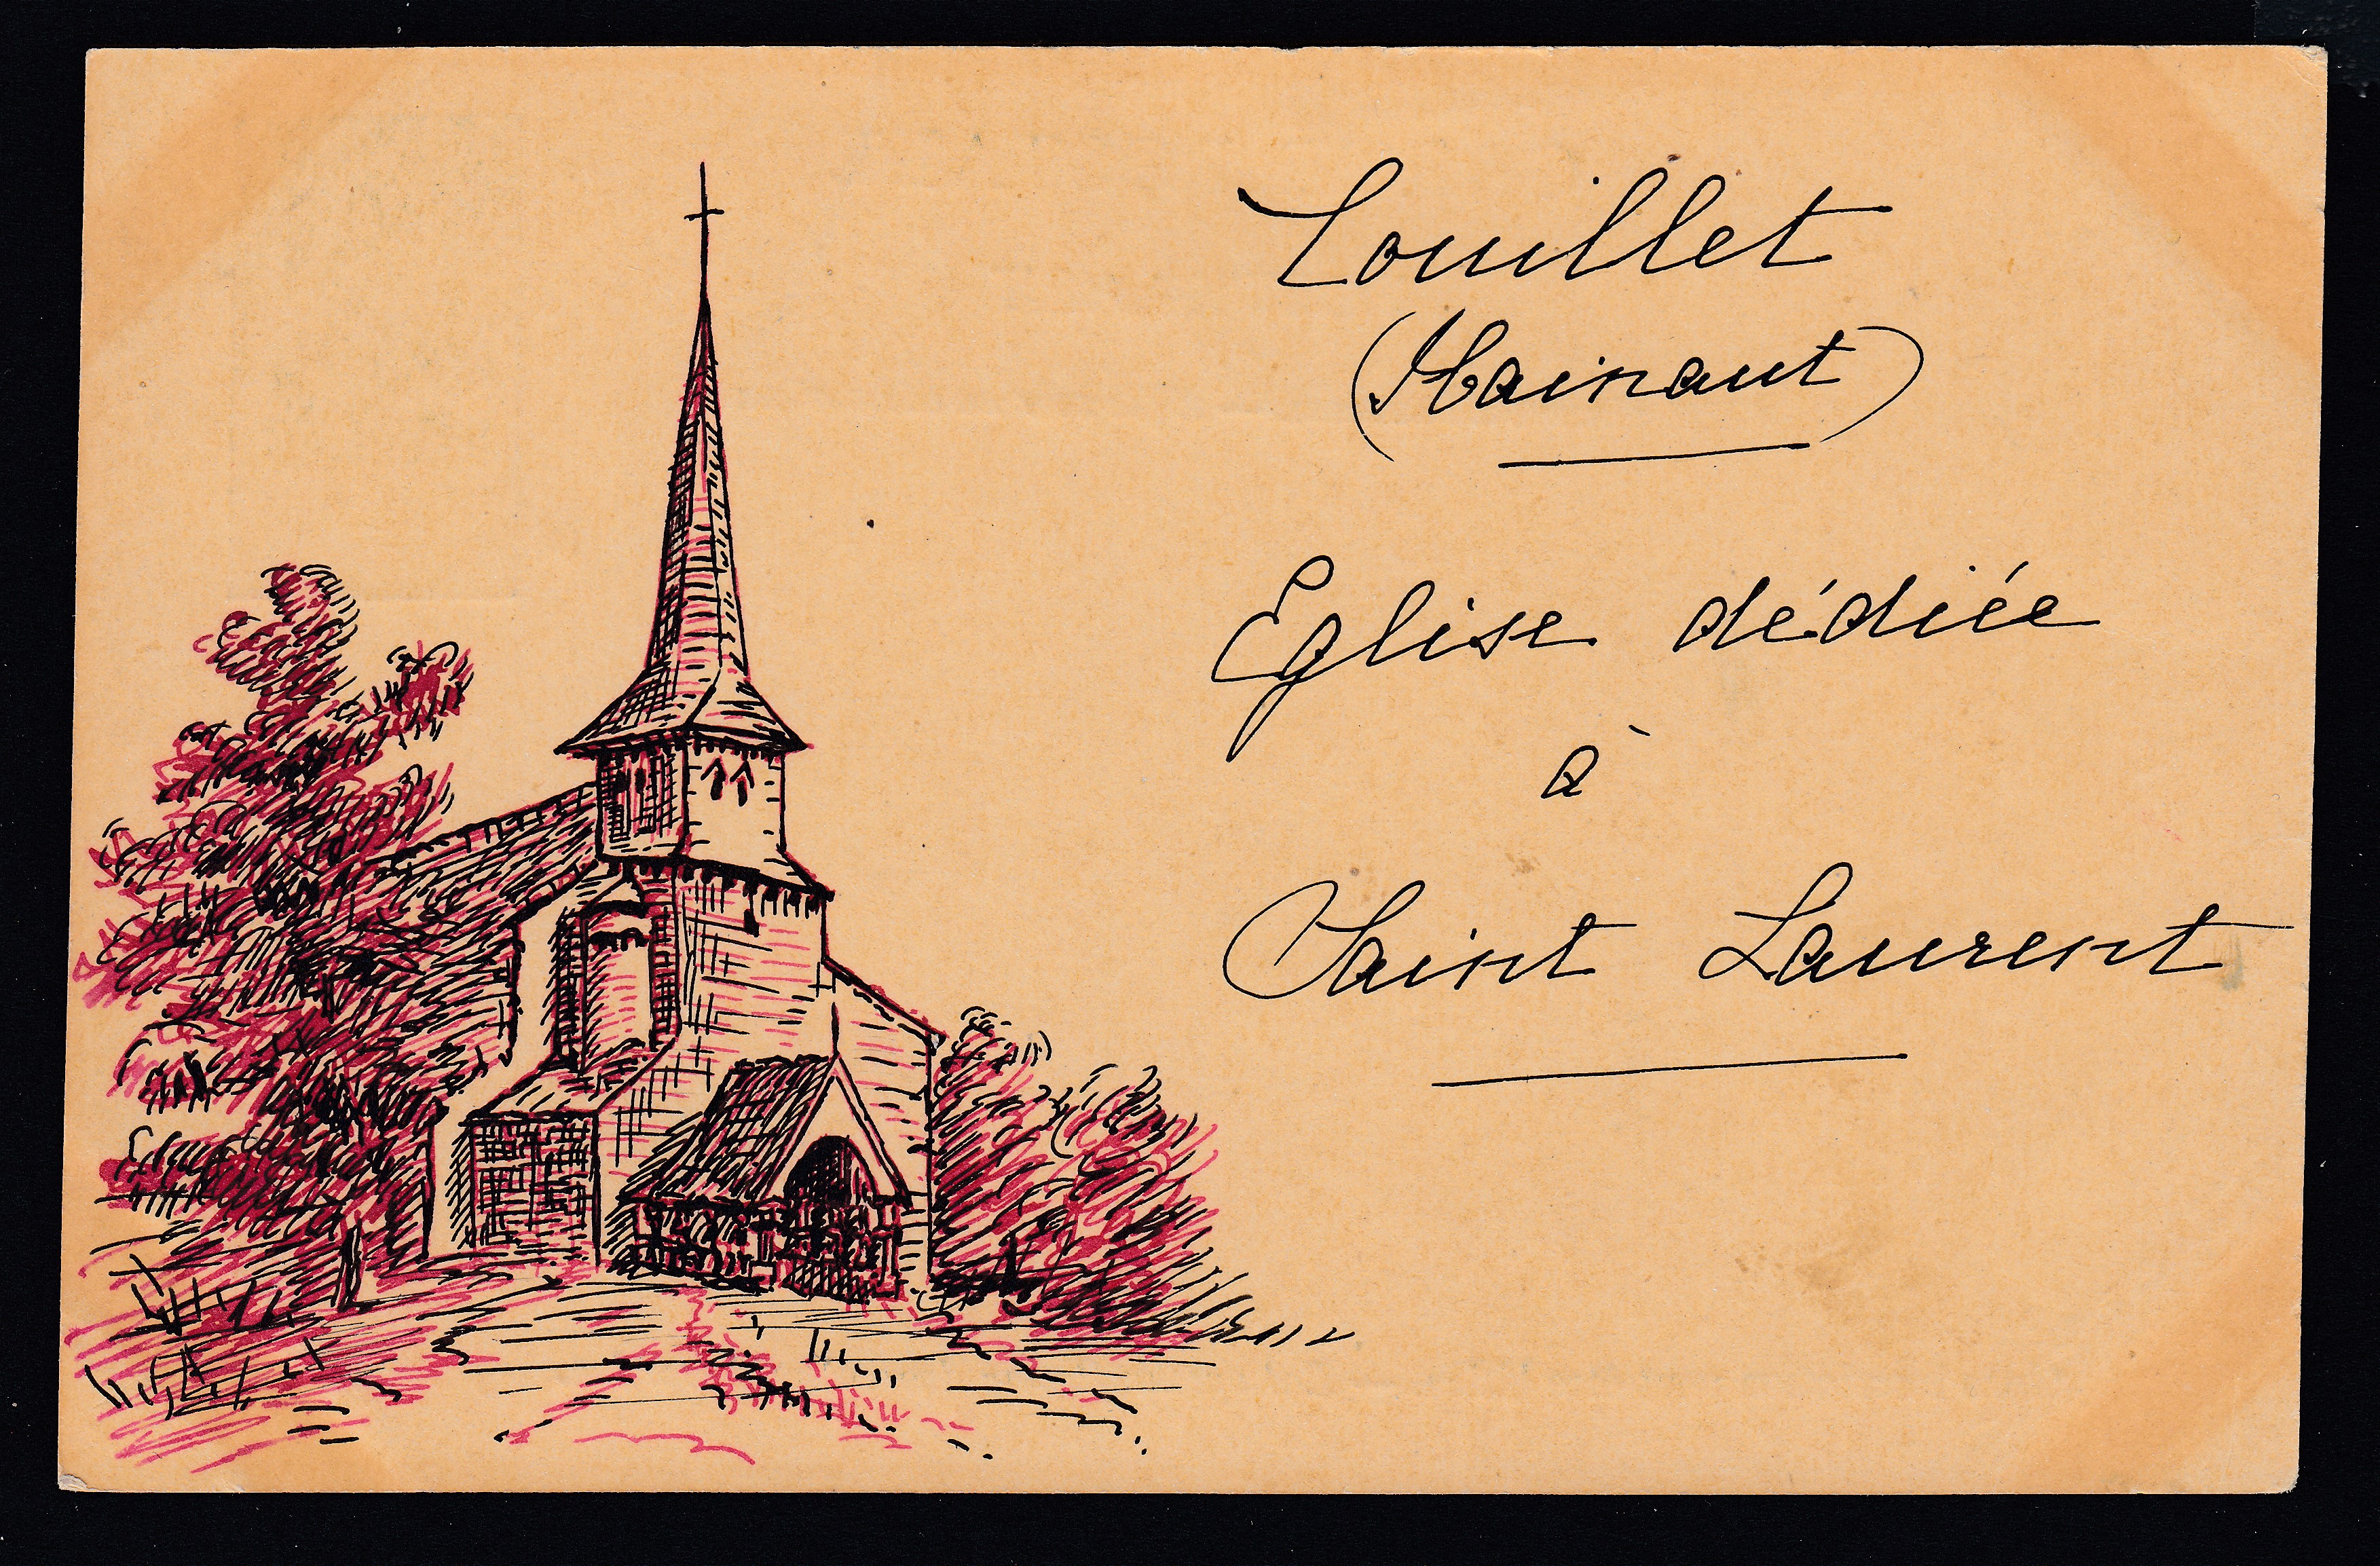 Couillet
(Hainaut)
Eglise dédiée
à
Saint Laurent